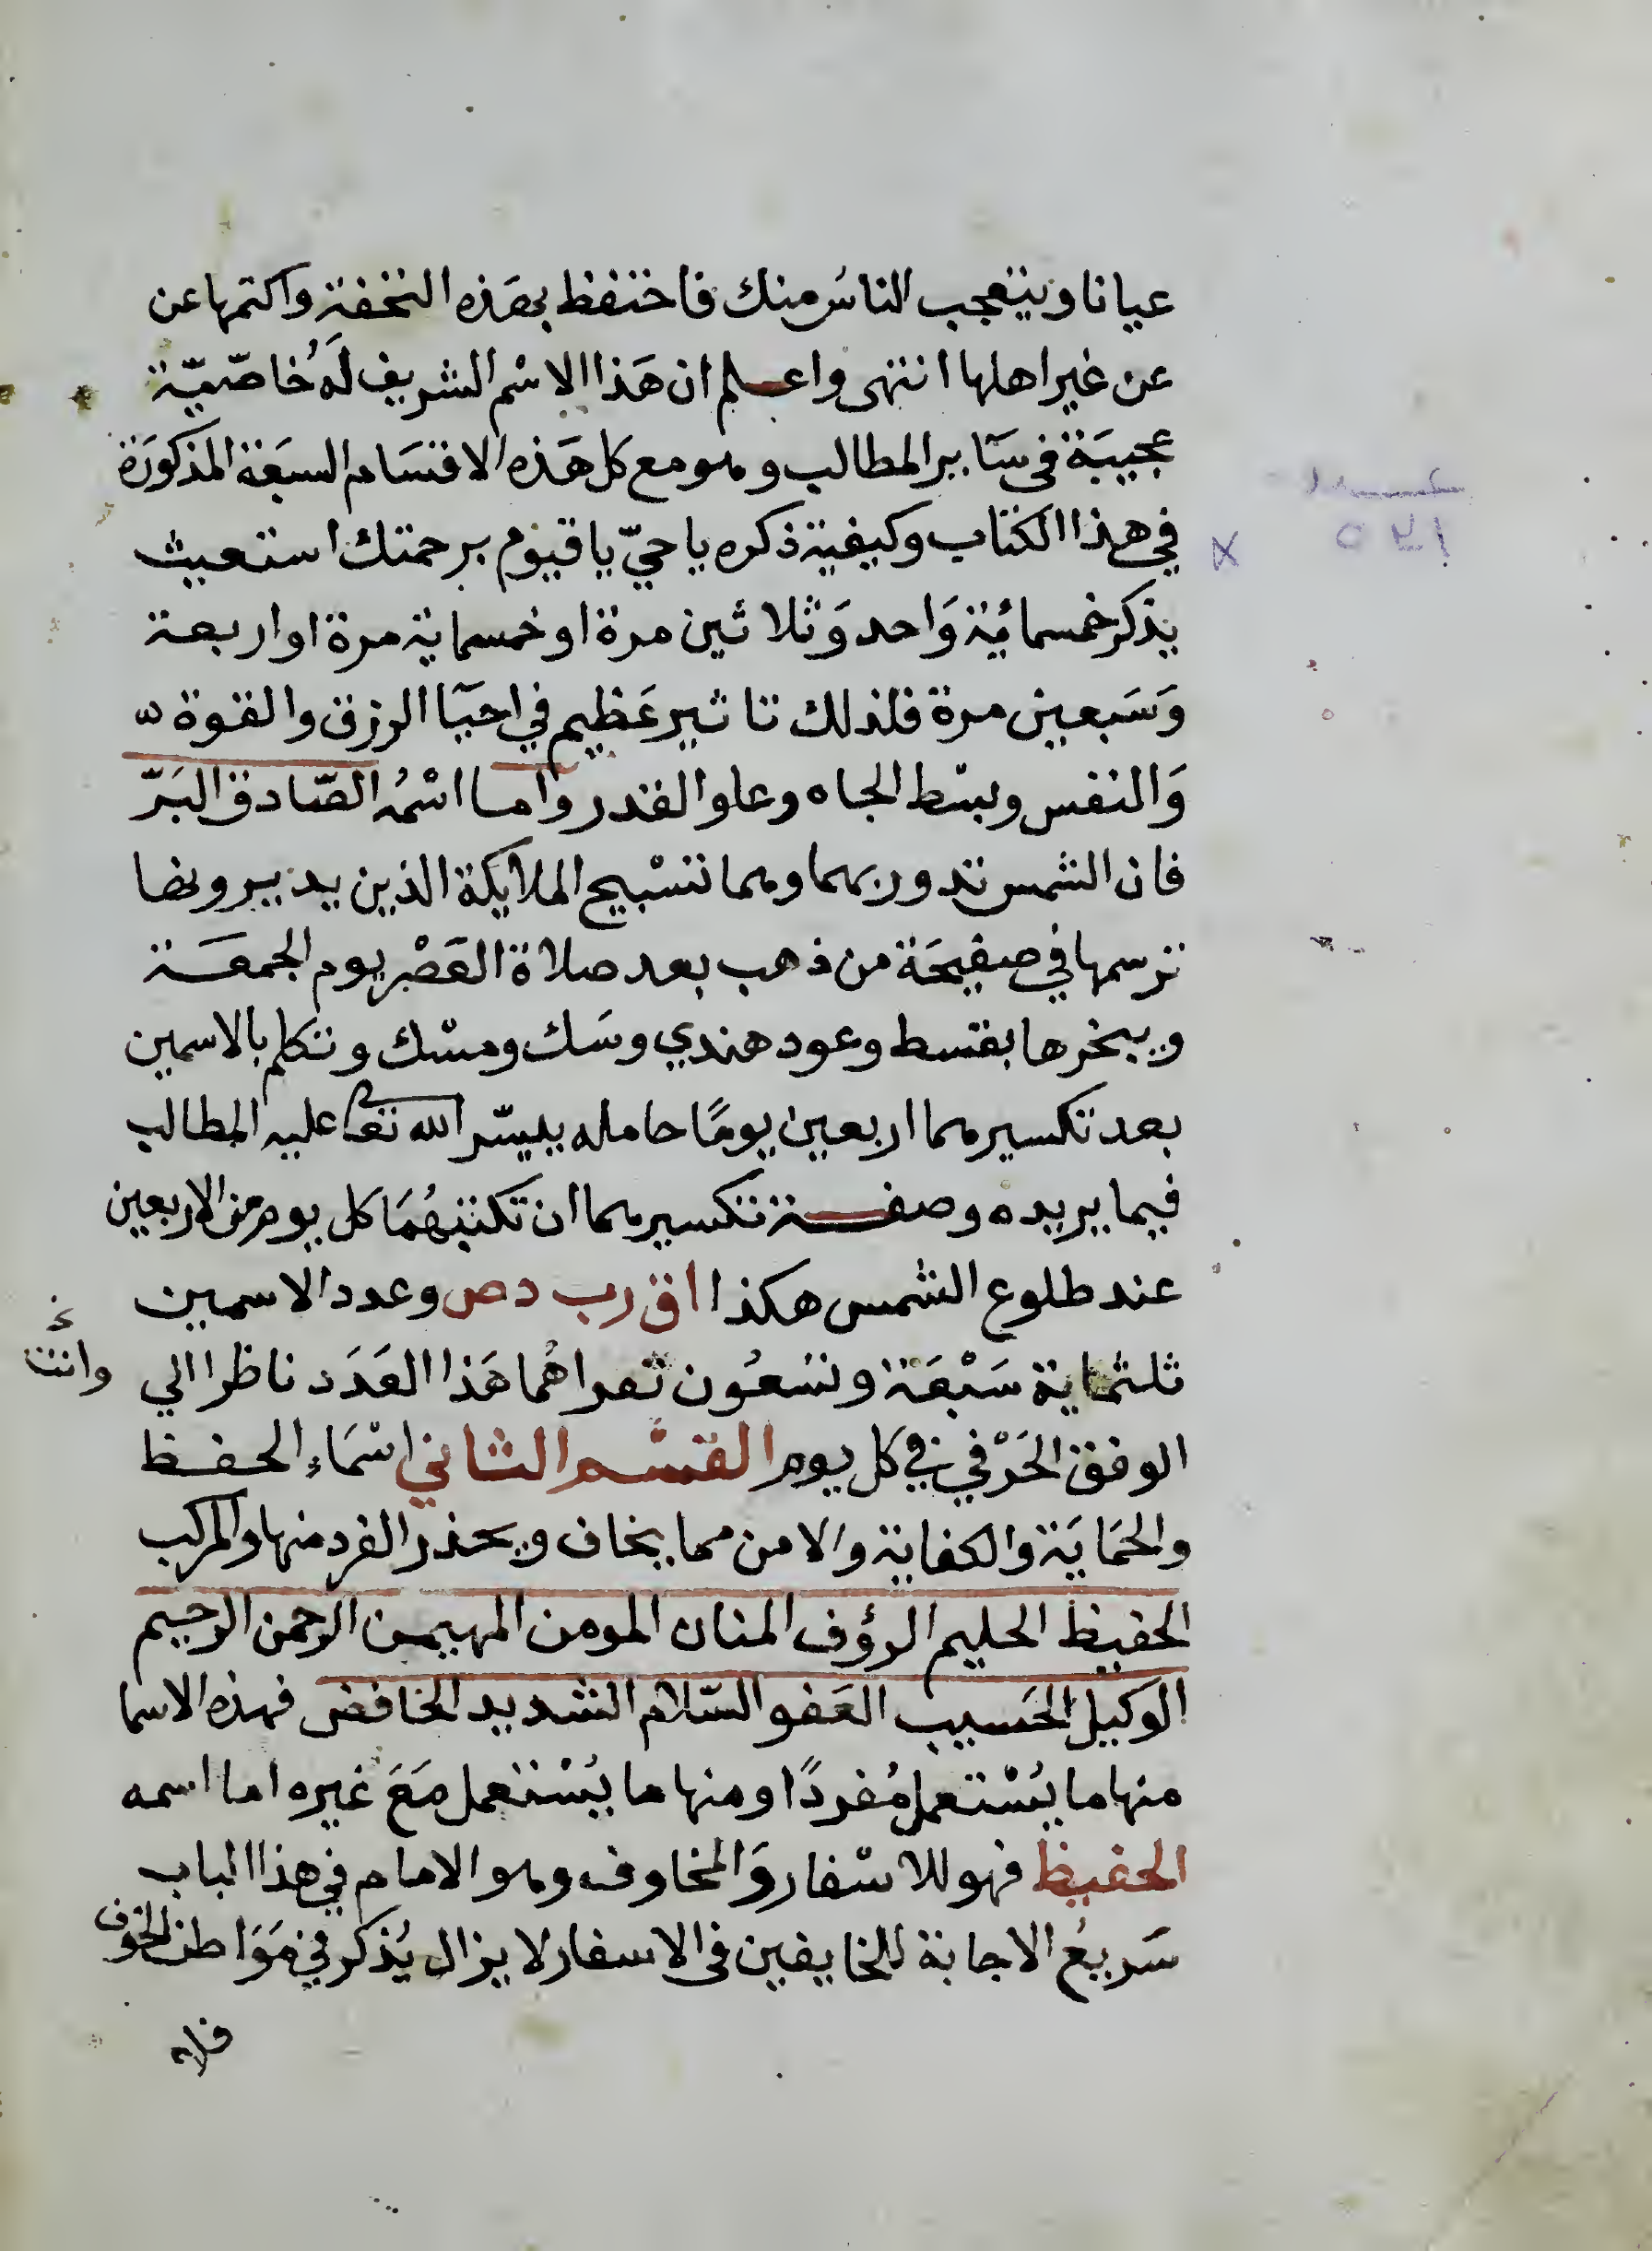 عيانا ويتعجب الناسُ منك فاحتفظ بهَذه التحفة واكتمها عن
عن غير اهلها انتهى واعلم ان هَذا الاسْم الشريف لَهُ خاصّيّة
عجيبَة في سَآير المطالب وهو مع كل هَذه الاقسَام السبعَة المذكورَة
في هذا الكتاب وكيفية ذكره يا حيّ يا قيوم برحمتك استغيث
يذكر خمسمائة وَاحد وَثلاثين مرة او خمسماية مرة او اربعة
وَسَبعين مرة فلذلك تاثير عَظيم في احيَآ الرزق والقوة
وَالنفس وبسْط الجاه وعلو القدر واما اسْمُه الصّادق البَرّ
فان الشمس تدور بهما وهما تسْبيح الملايكة الذين يديرونها
ترسمها في صفيحَة من ذهب بعد صلاة العَصْر يوم الجمعَة
ويبخرها بقسط وعود هندي وسَك ومسْك وتتكلم بالاسمين
بعد تكسيرهما اربعين يومًا حامله ييسّر الله تعا عليه المطالب
فيما يريده وصفة تكسيرهما ان تكتبهُمَا كل يوم من الاربعين
عند طلوع الشمس هكذا اق رب دص وعدد الاسمين
ثلثماية سَبْعَة وتسْعُون تقراهُما هَذا العَدَد ناظرا الي
وانت
الوفق الحَرْفي في كل يوم القسْم الثاني اسْمَاء الحفظ
والحمَايَة والكفاية والامن مما يخاف ويحذر الفرد منها والمركب
الحفيظ الحليم الرؤف المنان المومن المهيمن الرحمن الرحيم
الوكيل الحَسيب العَفو السّلام الشديد الخافض فهذه الاسما
منها ما يُسْتعمل مُفردًا ومنها ما يُسْتعمل مَعَ غيره اما اسمه
الحفيظ فهو للاسْفار وَالمخاوف وهو الامام في هذا الباب
سَريعُ الاجابة للخايفين في الاسفار لا يزال يُذكر في مَوَاطن الخوف
فلا